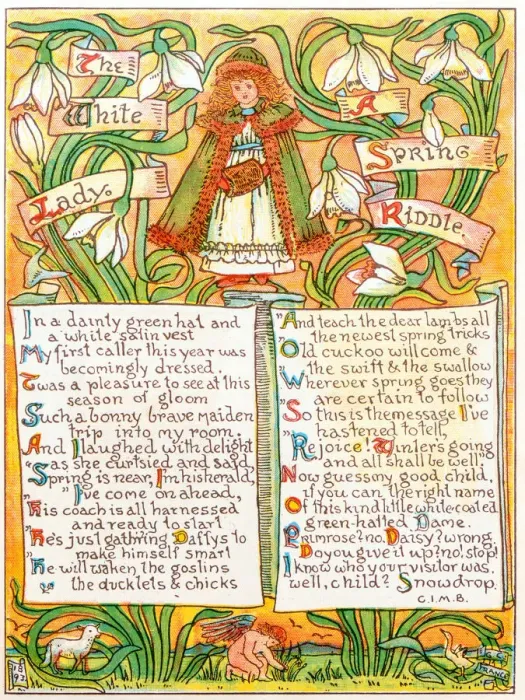 The
White
Lady.
A
Spring
Riddle.
In a dainty green hat and
a white satin vest
My first caller this year was
becomingly dressed.
Twas a pleasure to see at this
season of gloom
Such a bonny brave maiden
trip into my room.
And I laughed with delight
as she curtsied and said,
"Spring is near, I'm his herald,
I've come on ahead,
"His coach is all harnessed
and ready to start
"He's just gathring Daffys to
make himself smart
"He will waken the goslins
& the ducklets & chicks
"And teach the dear lambs all
the newest spring tricks
Old cuckoo will come &
the swift & the swallow
Wherever spring goes they
are certain to follow
So this is the message I've
hastened to tell,
"Rejoice! Winter's going
and all shall be well."
Now guess my good child,
if you can the right name
Of this kind little white-coated
green-hatted Dame.
Primrose? no. Daisy? wrong.
Do you give it up? no! stop!
I know who your visitor was.
well, child? Snowdrop.
C.I.M.B.
1892